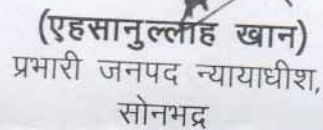 (एहसानुल्लाह खान)
प्रभारी जनपद न्यायाधीश,
सोनभद्र